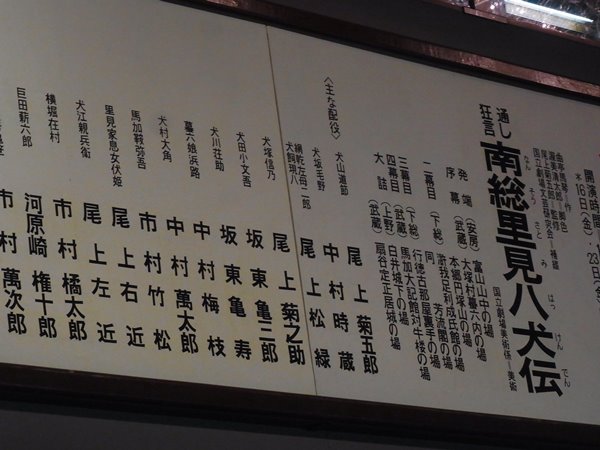 開演時間
木16日(金)
23日(金
曲亭馬琴=作
渥美清太郎=脚色
尾上菊五郎=監修
国立劇場文芸研究会=補綴
国立劇場美術係=美術
通し狂言 南総里見八犬伝
なんそうさとみはっけんでん
発端 (安房) 富山山中の場
序幕 (武蔵) 大塚村蟇六内の場
本郷円塚山の場
二幕目 (下総) 滸我足利成氏館の場
同 芳流閣の場
三幕目 (下総) 行徳古那屋裏手の場
(武蔵) 馬加大記館対牛楼の場
四幕目 (上野) 白井城下の場
大詰 (武蔵) 扇谷定正居城の場
〈主な配役〉
犬山道節 尾上菊五郎
犬坂毛野 中村時蔵
網乾左母二郎
犬飼現八 尾上松緑
犬塚信乃 尾上菊之助
犬田小文吾 坂東亀三郎
犬川荘助 坂東亀寿
蟇六娘浜路 中村梅枝
犬村大角 中村萬太郎
馬加鞍弥吾 市村竹松
里見家息女伏姫 尾上右近
犬江親兵衛 尾上左近
横堀在村 市村橘太郎
巨田薪六郎 河原崎権十郎
市村萬次郎